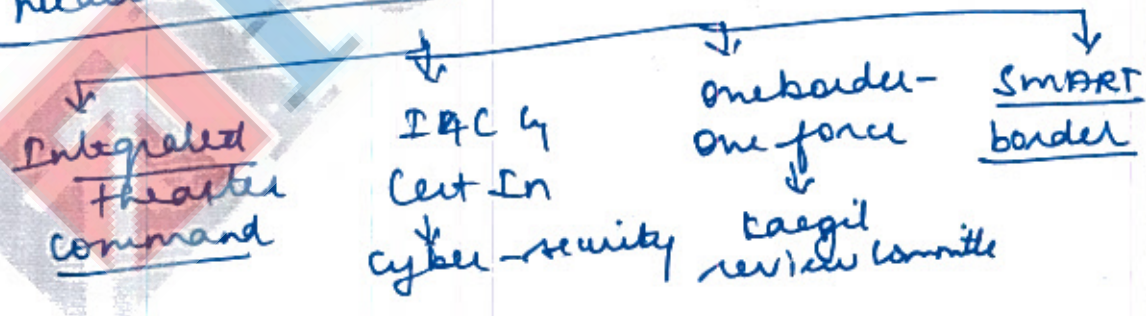 Integrated
theater
command
I4C &
Cert In
cyber-security
One border-
One force
kargil
review committe
SMART
border